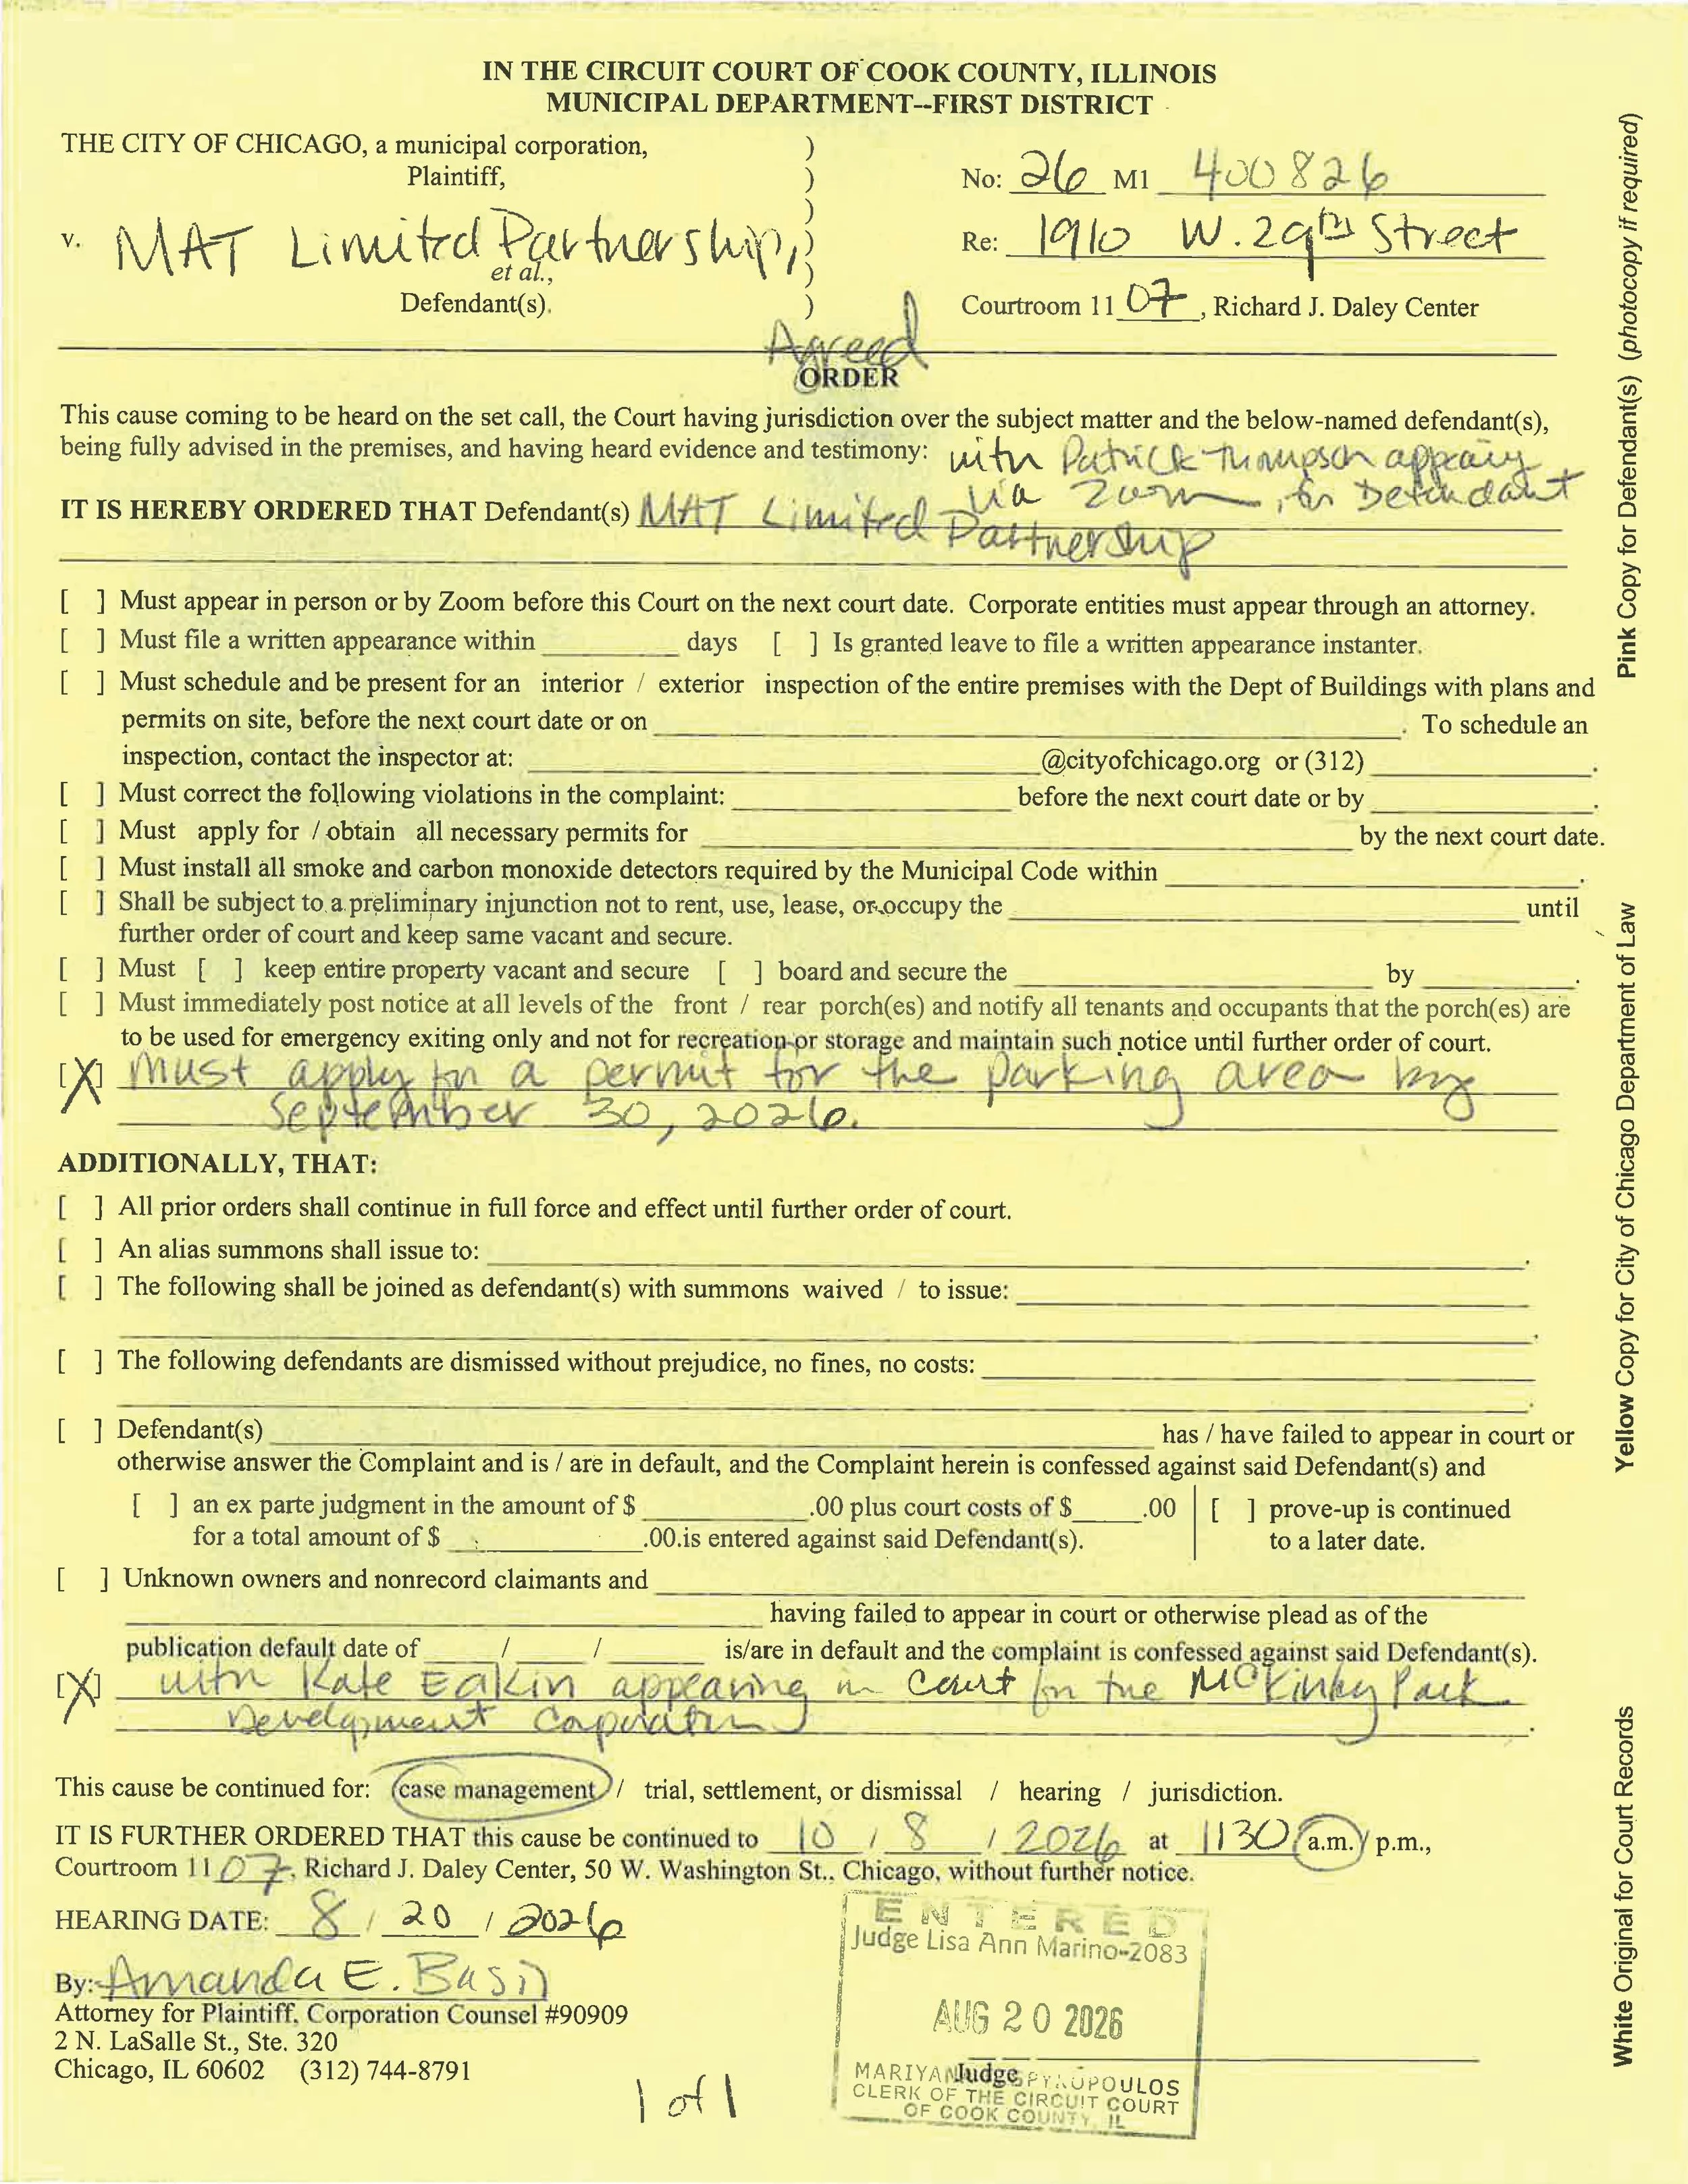 IN THE CIRCUIT COURT OF COOK COUNTY, ILLINOIS
MUNICIPAL DEPARTMENT--FIRST DISTRICT
THE CITY OF CHICAGO, a municipal corporation,
Plaintiff,
v. MAT Limited Partnership,
et al.,
Defendant(s).
)
)
)
)
)
)
No: 26 M1 400826
Re: 1910 W. 29th Street
Courtroom 11 07, Richard J. Daley Center
Agreed
ORDER
This cause coming to be heard on the set call, the Court having jurisdiction over the subject matter and the below-named defendant(s),
being fully advised in the premises, and having heard evidence and testimony: with Patrick Thompson appearing
via Zoom, for Defendant
IT IS HEREBY ORDERED THAT Defendant(s) MAT Limited Partnership
[ ] Must appear in person or by Zoom before this Court on the next court date. Corporate entities must appear through an attorney.
[ ] Must file a written appearance within ________ days [ ] Is granted leave to file a written appearance instanter.
[ ] Must schedule and be present for an interior / exterior inspection of the entire premises with the Dept of Buildings with plans and
permits on site, before the next court date or on ________. To schedule an
inspection, contact the inspector at: ________@cityofchicago.org or (312) ________.
[ ] Must correct the following violations in the complaint: ________ before the next court date or by ________.
[ ] Must apply for / obtain all necessary permits for ________ by the next court date.
[ ] Must install all smoke and carbon monoxide detectors required by the Municipal Code within ________.
[ ] Shall be subject to a preliminary injunction not to rent, use, lease, or occupy the ________ until
further order of court and keep same vacant and secure.
[ ] Must [ ] keep entire property vacant and secure [ ] board and secure the ________ by ________.
[ ] Must immediately post notice at all levels of the front / rear porch(es) and notify all tenants and occupants that the porch(es) are
to be used for emergency exiting only and not for recreation or storage and maintain such notice until further order of court.
[X] Must apply for a permit for the parking area by
September 30, 2026.
ADDITIONALLY, THAT:
[ ] All prior orders shall continue in full force and effect until further order of court.
[ ] An alias summons shall issue to: ________.
[ ] The following shall be joined as defendant(s) with summons waived / to issue: ________
________.
[ ] The following defendants are dismissed without prejudice, no fines, no costs: ________
________.
[ ] Defendant(s) ________ has / have failed to appear in court or
otherwise answer the Complaint and is / are in default, and the Complaint herein is confessed against said Defendant(s) and
[ ] an ex parte judgment in the amount of $ ________.00 plus court costs of $____.00 | [ ] prove-up is continued
for a total amount of $ ________.00.is entered against said Defendant(s). to a later date.
[ ] Unknown owners and nonrecord claimants and ________
________ having failed to appear in court or otherwise plead as of the
publication default date of ____/____/____ is/are in default and the complaint is confessed against said Defendant(s).
[X] with Kate Eakin appearing in Court for the McKinley Park
Development Corporation
This cause be continued for: case management / trial, settlement, or dismissal / hearing / jurisdiction.
IT IS FURTHER ORDERED THAT this cause be continued to 10 / 8 / 2026 at 1130 a.m./ p.m.,
Courtroom 11 07, Richard J. Daley Center, 50 W. Washington St., Chicago, without further notice.
HEARING DATE: 8 / 20 / 2026
By: Amanda E. Basil
Attorney for Plaintiff, Corporation Counsel #90909
2 N. LaSalle St., Ste. 320
Chicago, IL 60602 (312) 744-8791
1 of 1
ENTERED
Judge Lisa Ann Marino-2083
AUG 20 2026
Judge
MARIYANA SPYROPOULOS
CLERK OF THE CIRCUIT COURT
OF COOK COUNTY, IL
Pink Copy for Defendant(s) (photocopy if required)
Yellow Copy for City of Chicago Department of Law
White Original for Court Records